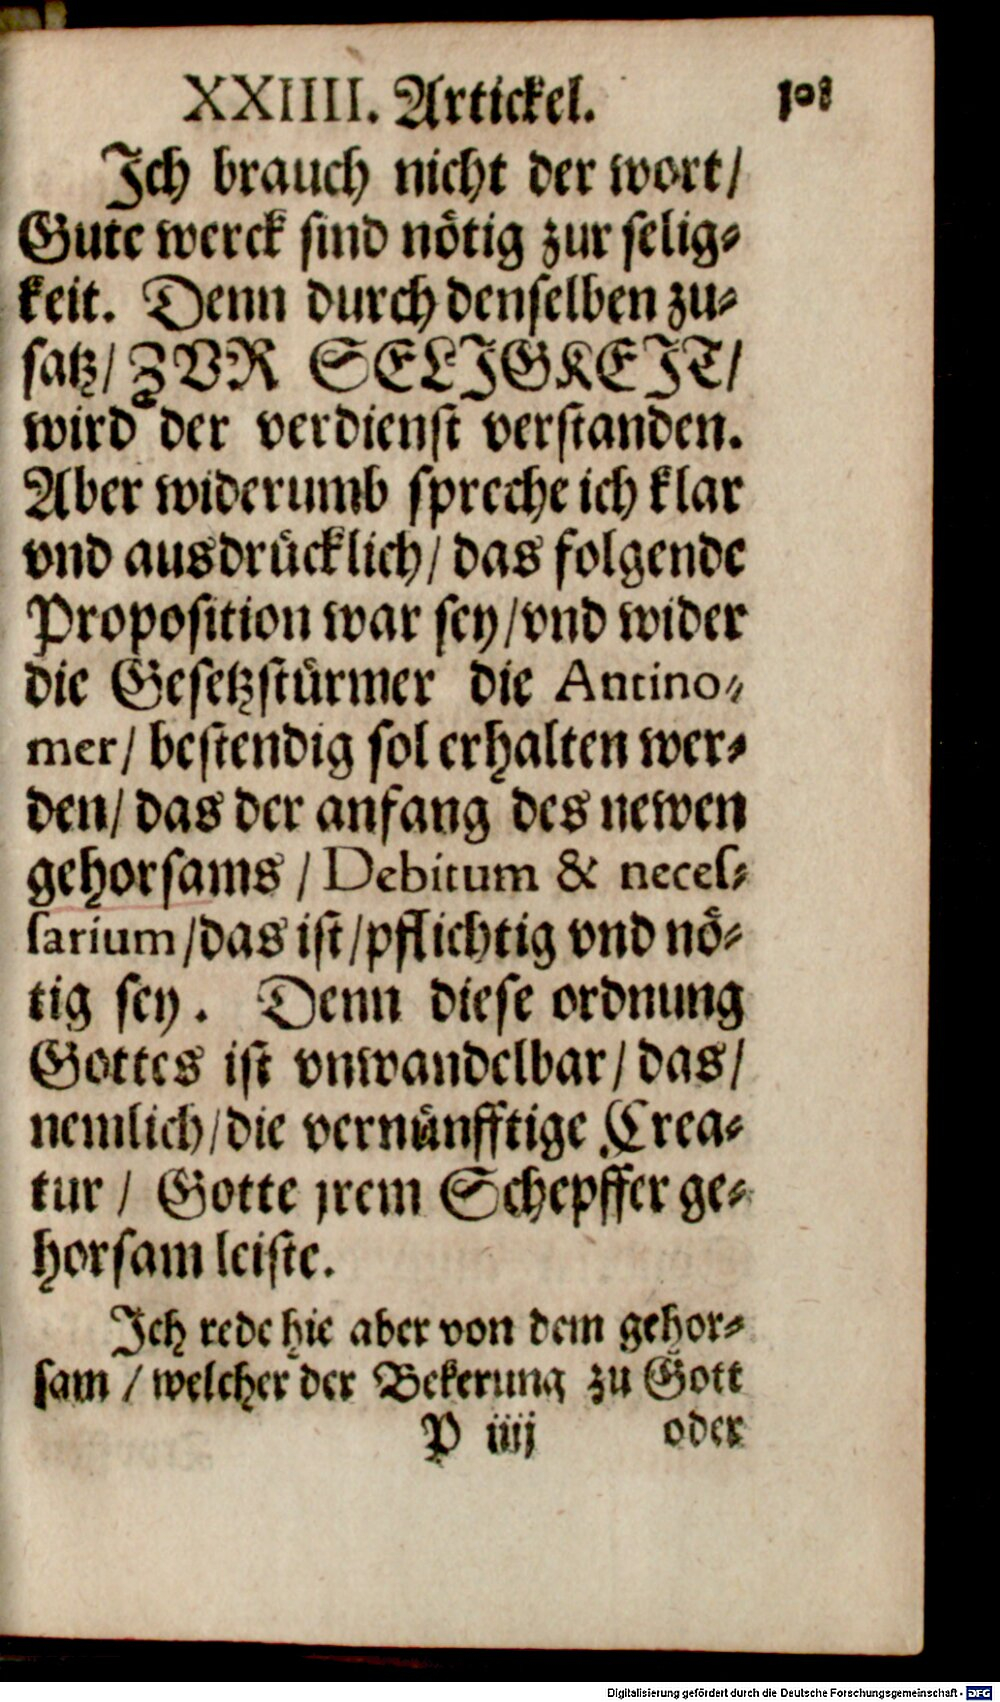 XXIIII. Artickel. 108
Jch brauch nicht der wort/
Gute werck sind nötig zur selig⸗
keit. Denn durch denselben zu⸗
satz/ ZVR SELJGKEJT/
wird der verdienst verstanden.
Aber widerumb spreche ich klar
vnd ausdrücklich/ das folgende
Proposition war sey/vnd wider
die Gesetzstürmer die Antino⸗
mer/ bestendig sol erhalten wer⸗
den/ das der anfang des newen
gehorsams / Debitum & neces⸗
sarium/das ist/pflichtig vnd nö⸗
tig sey. Denn diese ordnung
Gottes ist vnwandelbar/ das/
nemlich/die vernünfftige Crea⸗
tur / Gotte jrem Schepffer ge⸗
horsam leiste.
Jch rede hie aber von dem gehor⸗
sam / welcher der Bekerung zu Gott
P iiij oder
Digitalisierung gefördert durch die Deutsche Forschungsgemeinschaft - DFG